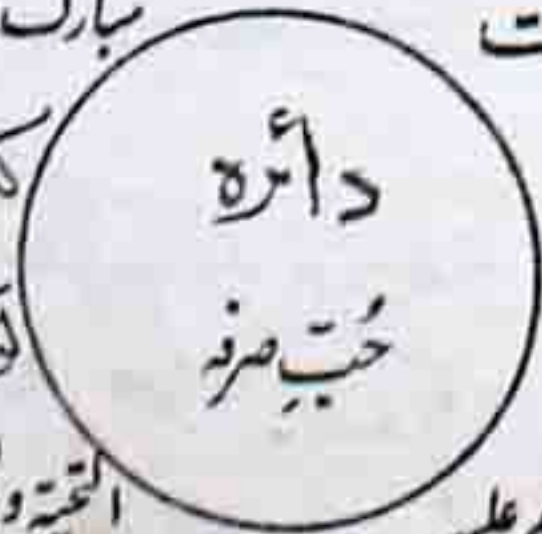 مبارک
دأئرہ
حُبِّ صرفہ
التحیۃ و
علی